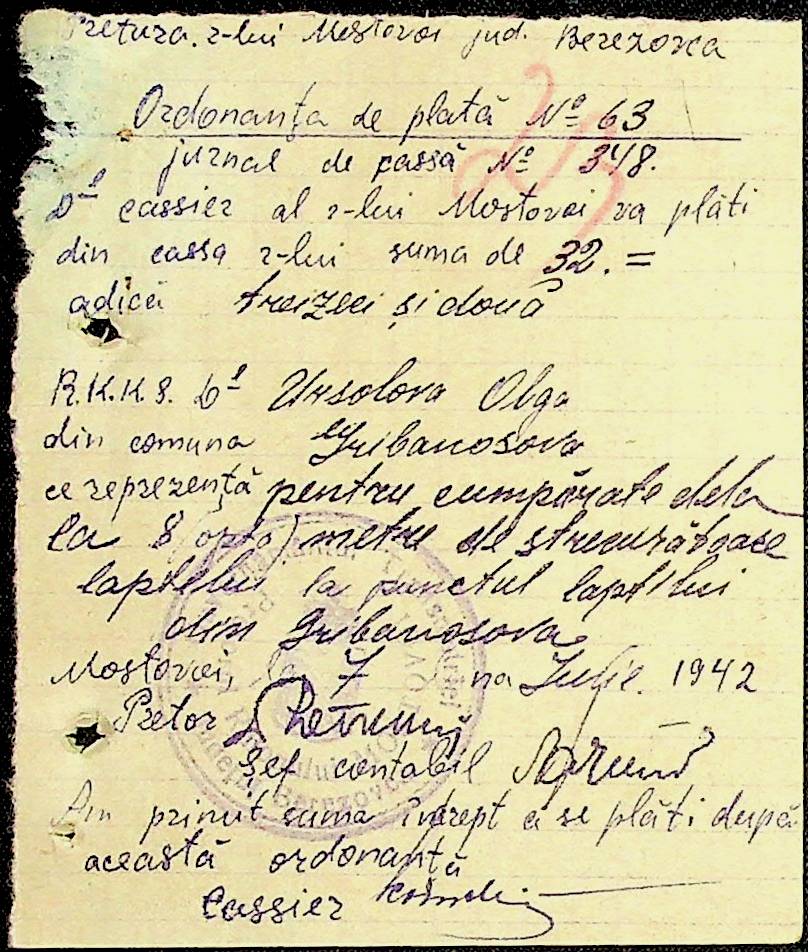 Pretura r-lui Mostovoi jud. Berezovca
Ordonanța de plată Nº 63
jurnal de cassă Nº 348.
D-l cassier al r-lui Mostovoi va plăti
din cassa r-lui suma de 32.=
adică treizeci și două
R.K.K.S. D-l Ursolova Olga
din comuna Gribanosova
ce reprezență pentru cumpărate dela
ea 8 (opto) metri de strecurătoare
laptelui la punctul laptelui
din Gribanosova
Mostovoi, la 7 na Julie. 1942
Pretor
Șef contabil
Am primit suma îndrept a se plăti după
această ordonanță
Cassier